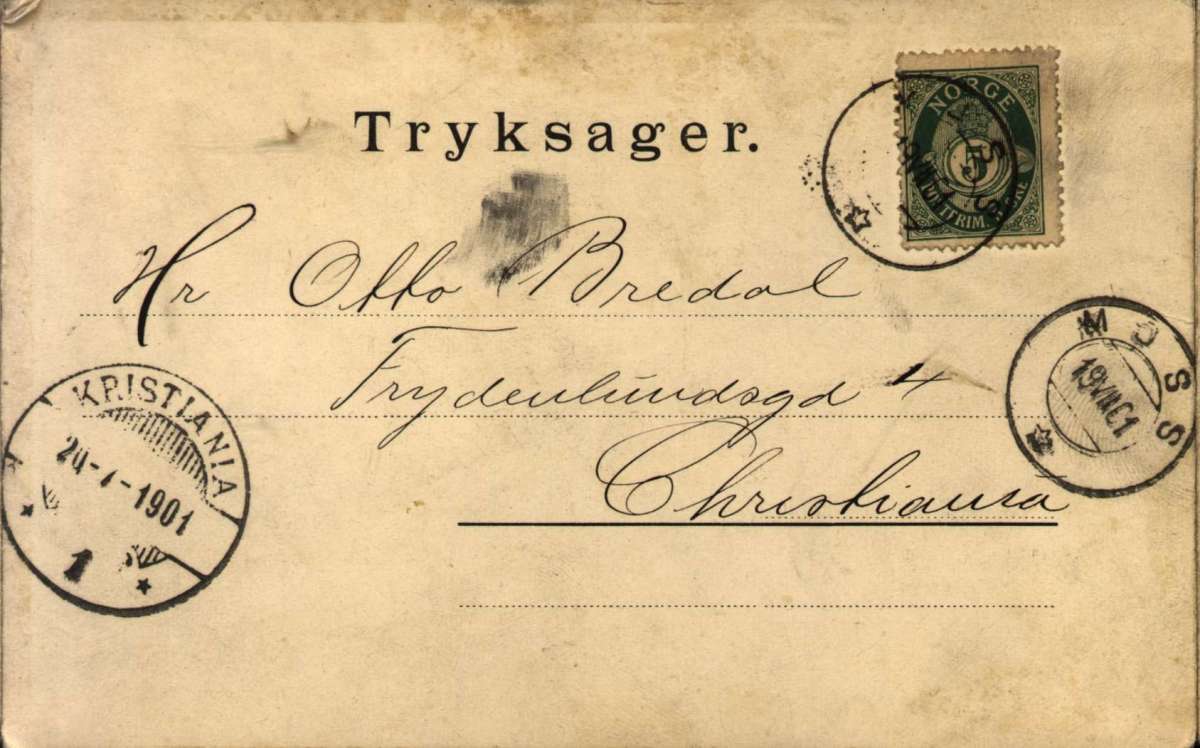 Tryksager.
NORGE
5
FRIM
Hr Otto Bredal
Frydenlundsgd 4
Christiania
KRISTIANIA
20-7-1901
1
MOSS
19 VII 01